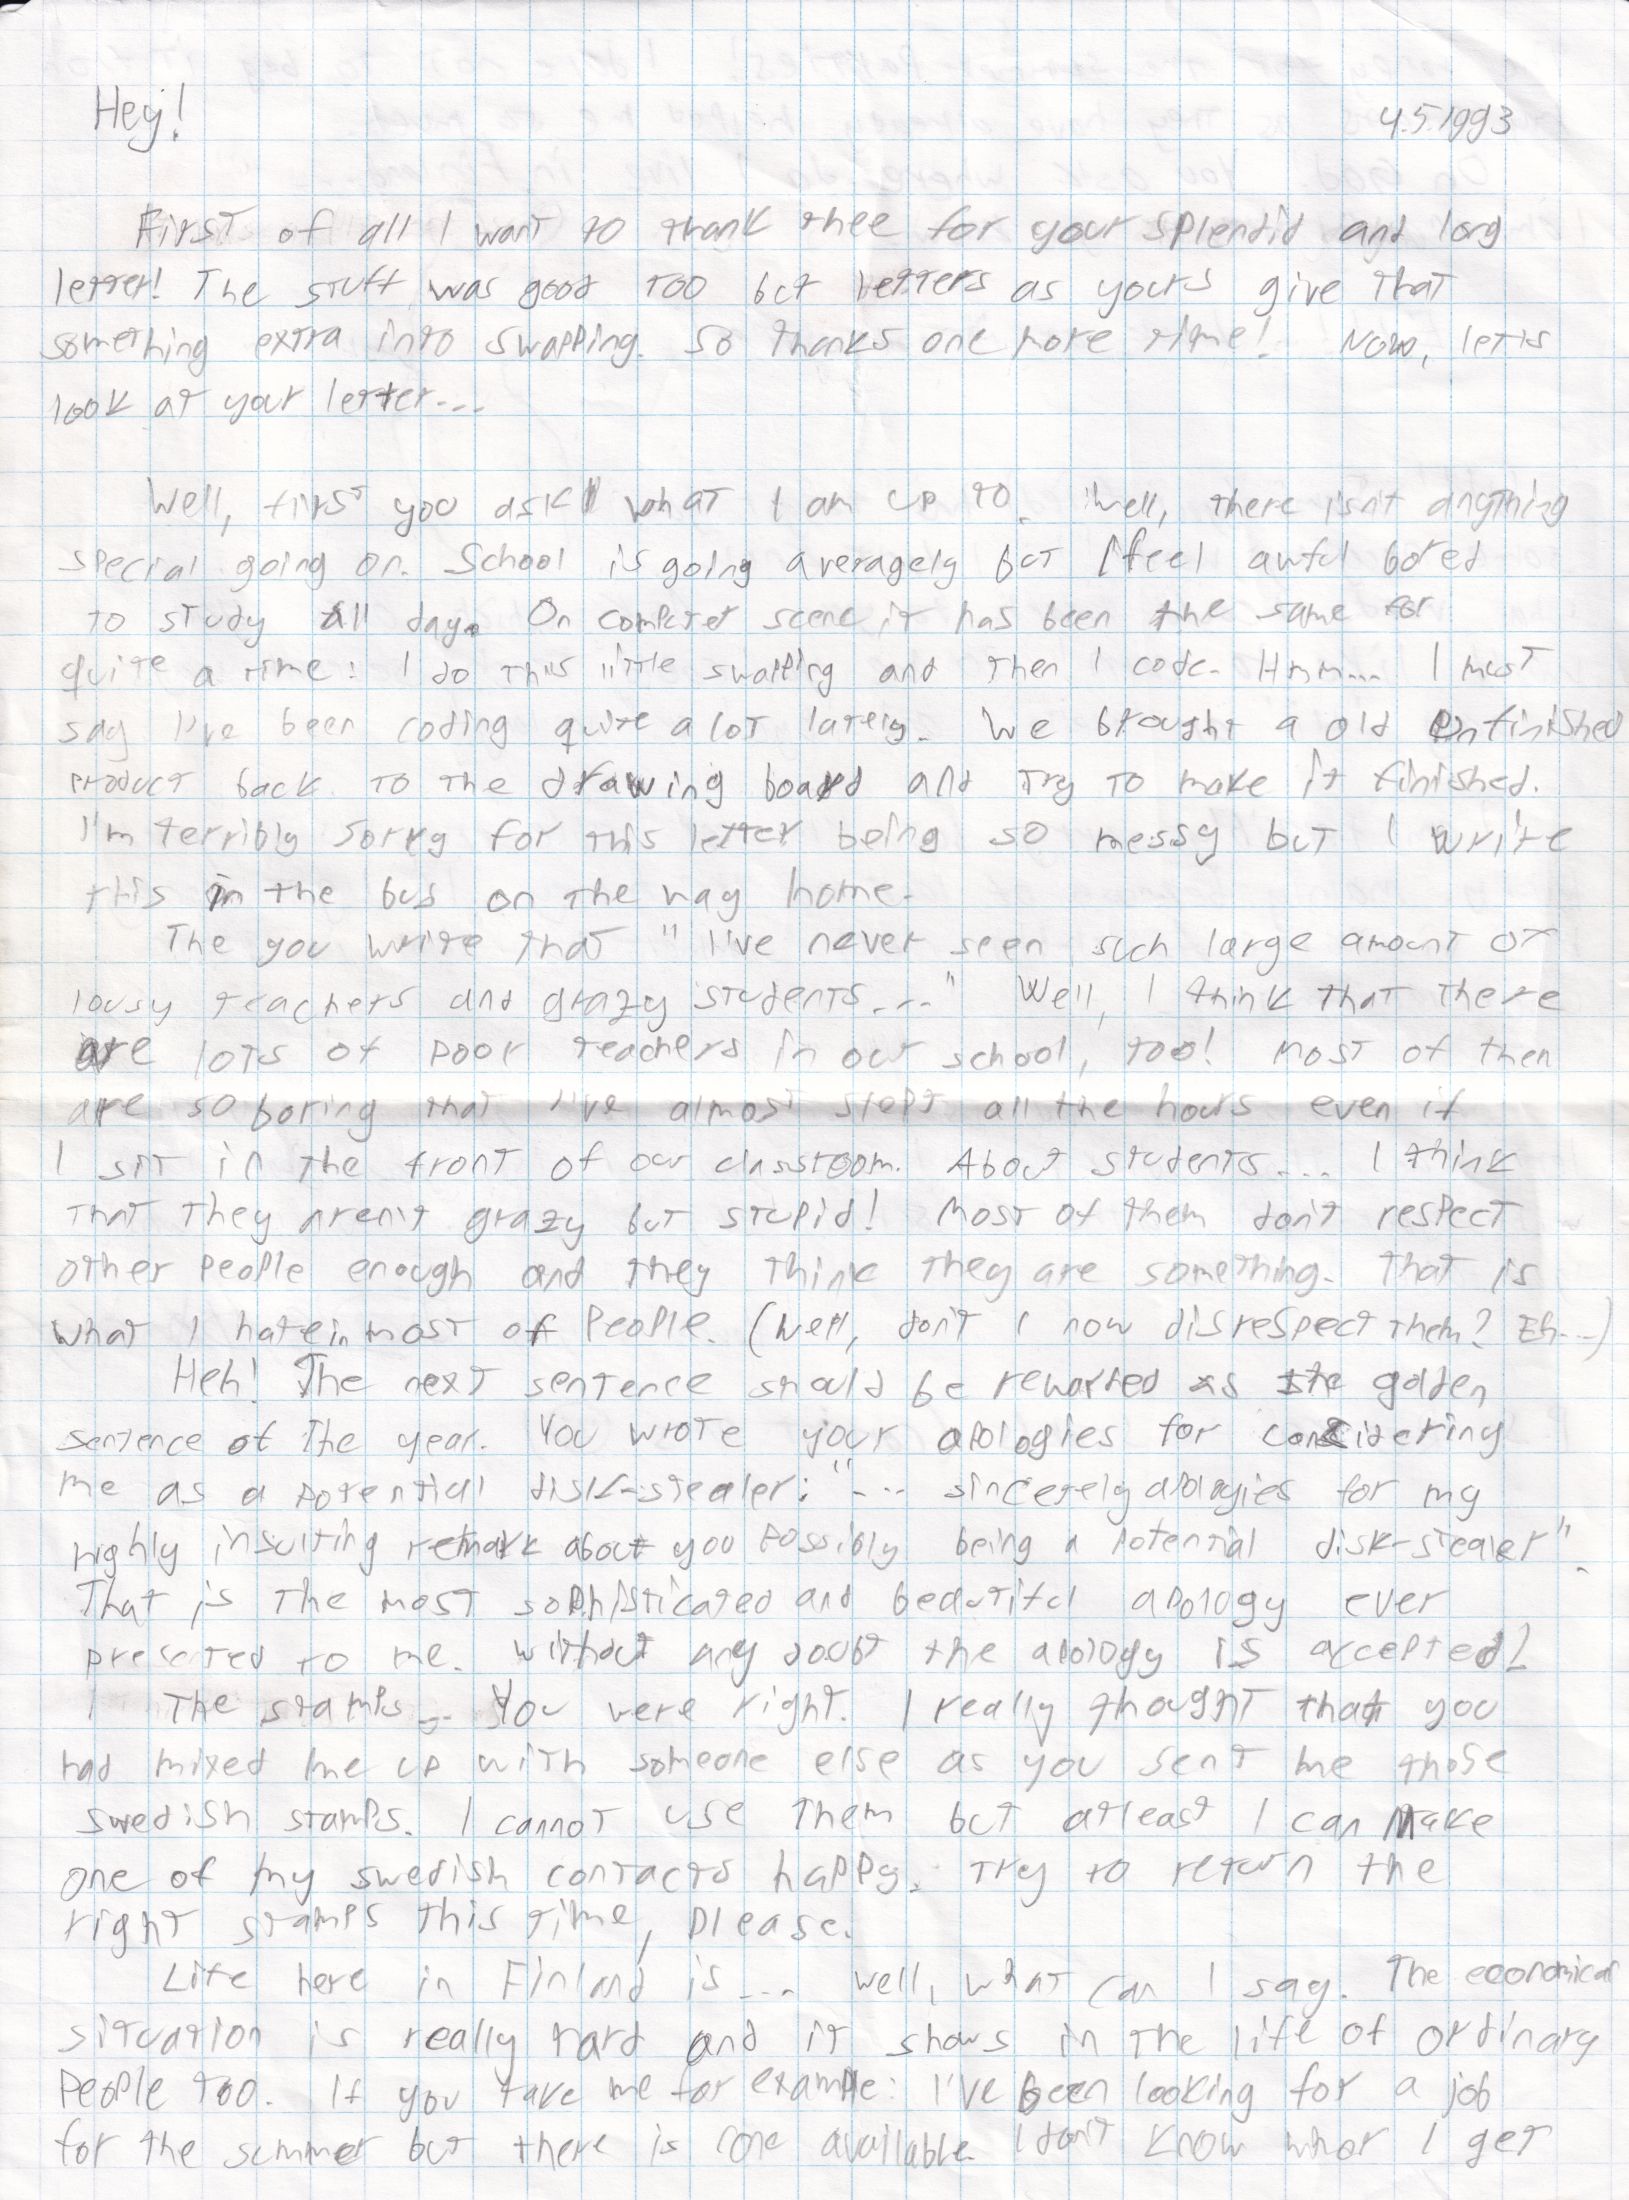 Hey! 4.5.1993
First of all I want to thank thee for your splendid and long
letter! The stuff was good too but letters as yours give that
something extra into swapping. So thanks one more time! Now, let's
look at your letter...
Well, first you ask what I am up to. Well, there isn't anything
special going on. School is going averagely but I feel awful bored
to study all day. On computer scene it has been the same for
quite a time: I do this little swapping and then I code. Hmm... I must
say I've been coding quite a lot lately. We brought a old unfinished
product back to the drawing board and try to make it finished.
I'm terribly sorry for this letter being so messy but I write
this in the bus on the way home.
The you write that "I've never seen such large amount of
lousy teachers and grazy students..." Well, I think that there
are lots of poor teachers in our school, too! Most of then
are so boring that I've almost slept all the hours even if
I sit in the front of our classroom. About students.... I think
that they aren't grazy but stupid! Most of them don't respect
other people enough and they think they are something. That is
what I hate in most of people. (Well, don't I now disrespect them? Eh...)
Heh! The next sentence should be rewarded as the golden
sentence of the year. You wrote your apologies for considering
me as a potential disk-stealer: "... sincerely apologies for my
highly insulting remark about you possibly being a potential disk-stealer".
That is the most sophisticated and beautiful apology ever
presented to me. Without any doubt the apology is accepted!
The stamps... You were right. I really thought that you
had mixed me up with someone else as you sent me those
swedish stamps. I cannot use them but atleast I can make
one of my swedish contacts happy. Try to return the
right stamps this time, please.
Life here in Finland is... well, what can I say. The economical
situation is really hard and it shows in the life of ordinary
people too. If you take me for example: I've been looking for a job
for the summer but there is none available. I don't know what I get